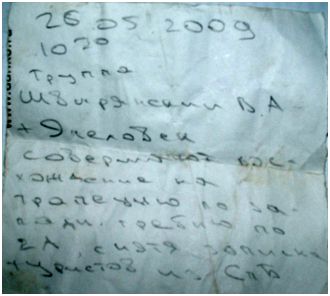 26 05 2009
10³⁰
группа
В.А
+ 9 человек
совершила вос-
хождение на
трапецию по за-
падн. гребню по
2А, снята записка
туристов из СПб